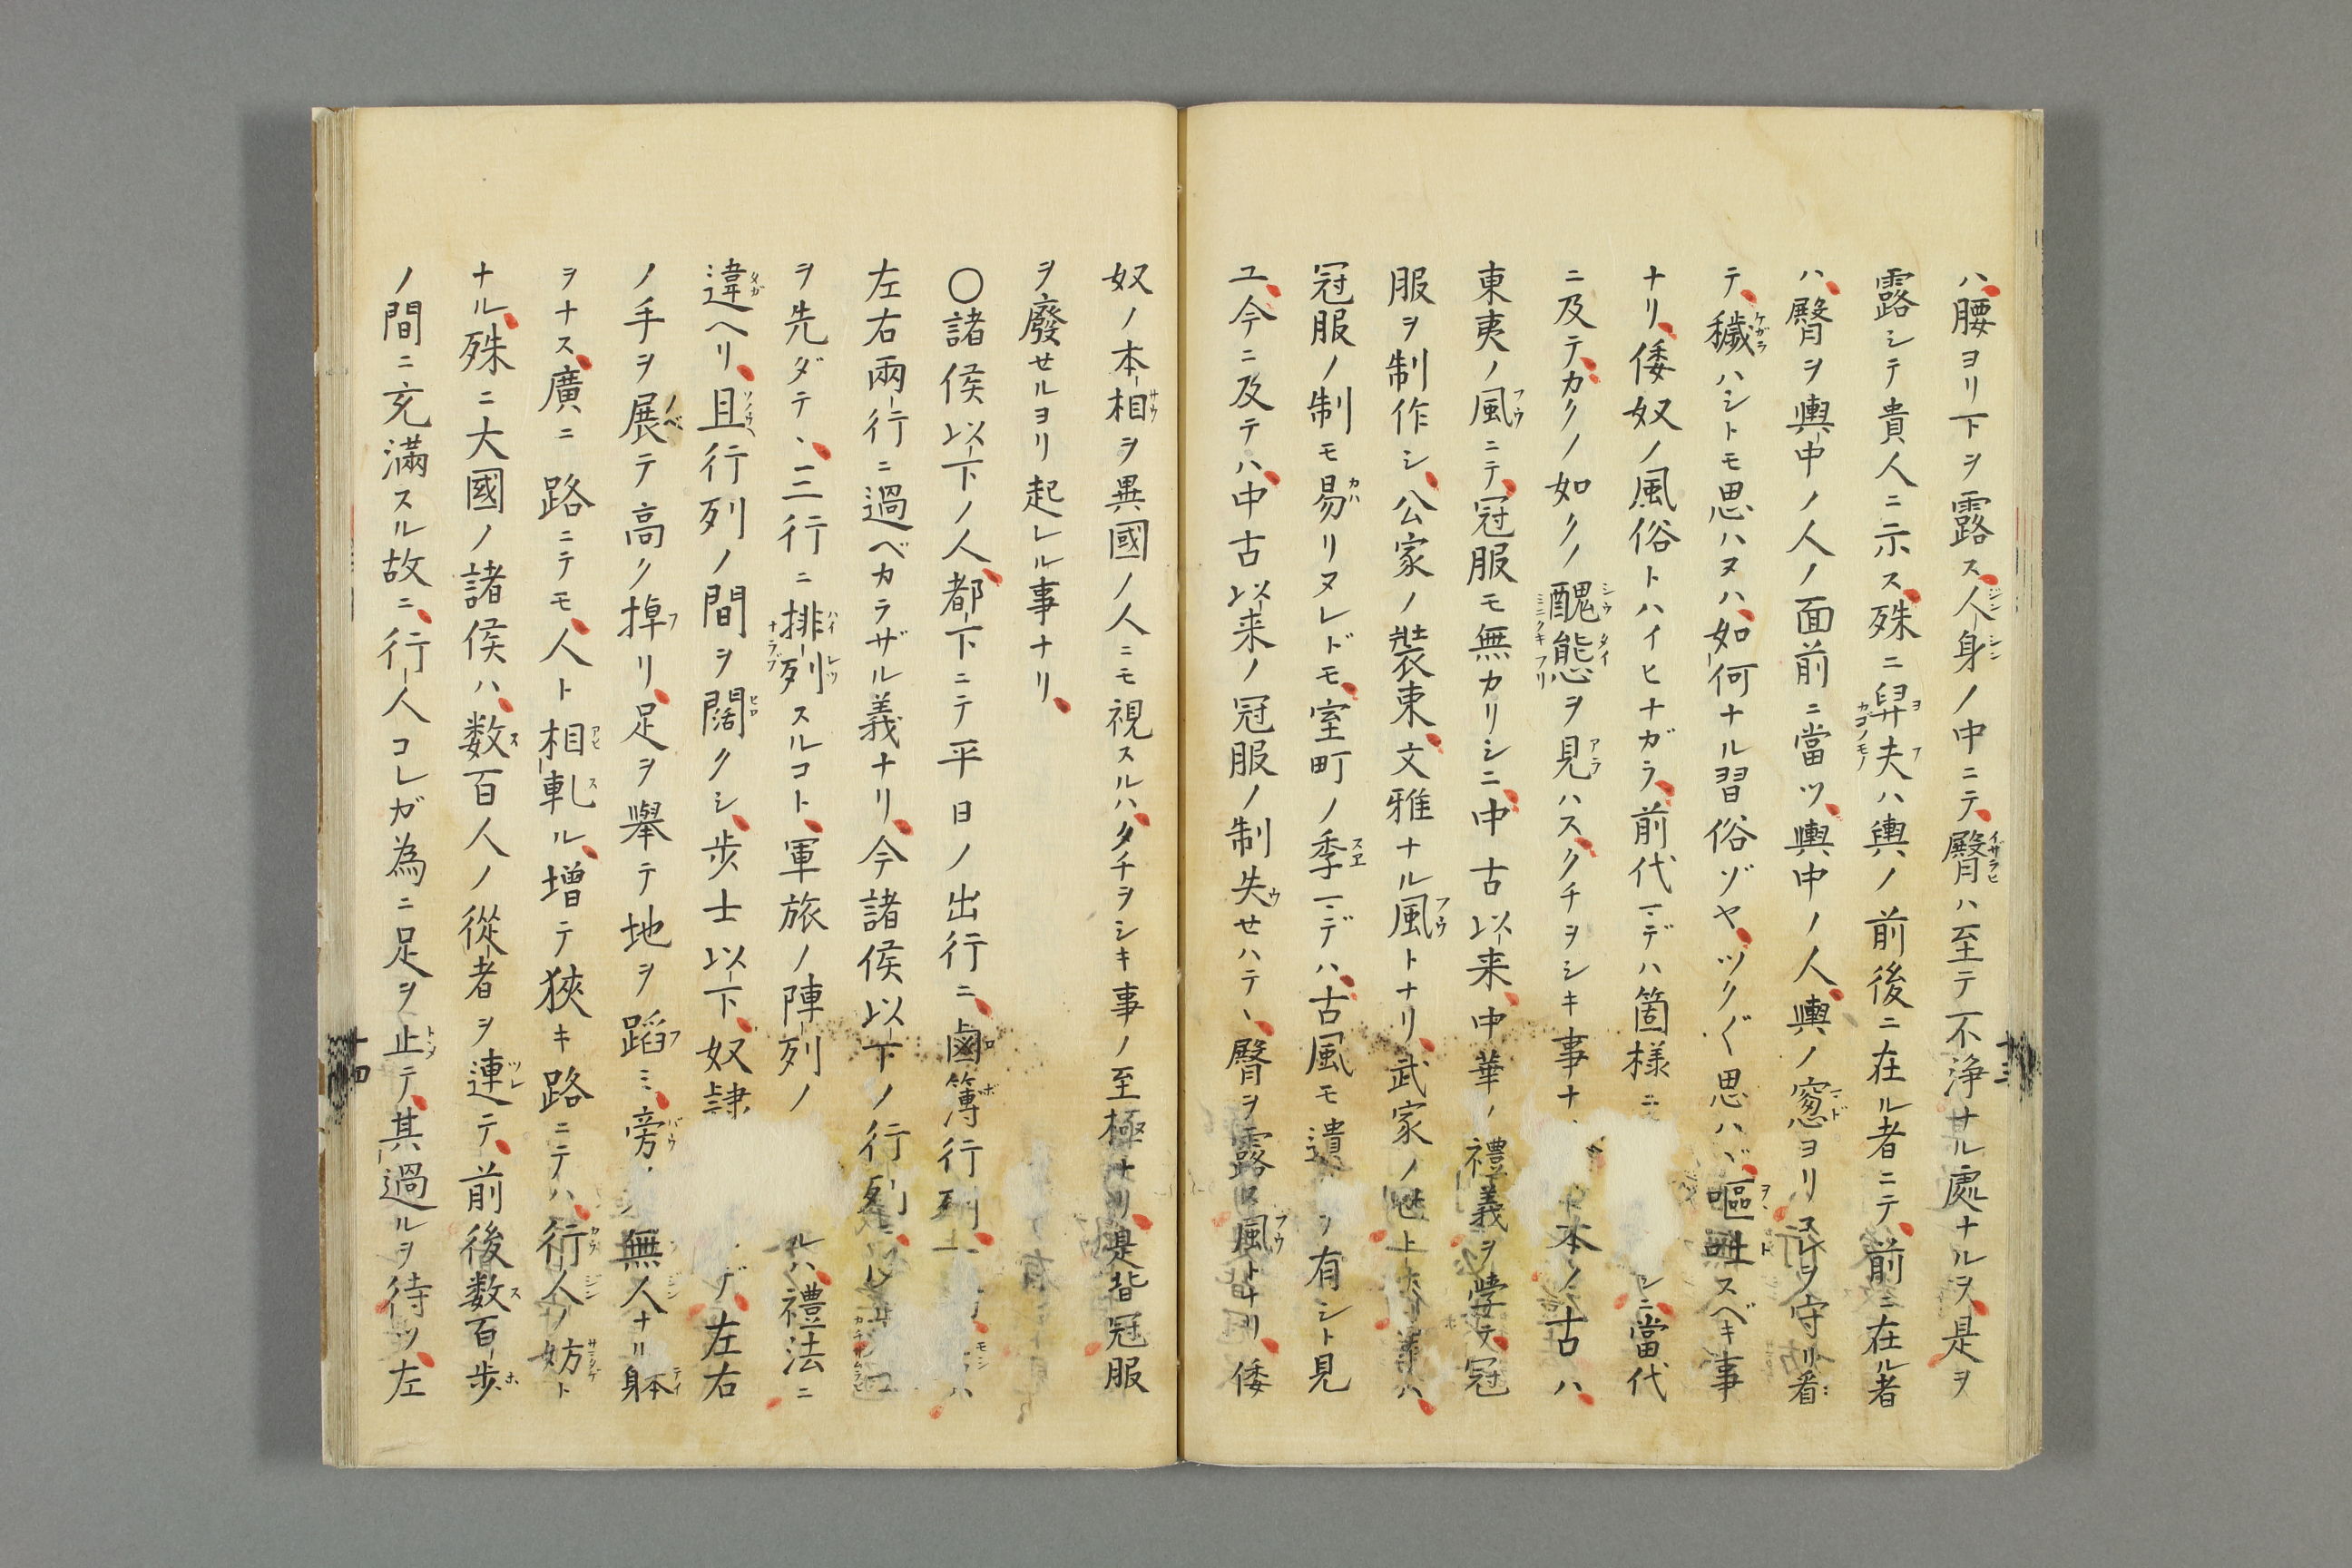 ハ、腰ヨリ下ヲ露ス、人身ノ中ニテ、臀ハ至テ不浄ナル處ナルヲ、是ヲ
露シテ貴人ニ示ス、殊ニ舁夫ハ輿ノ前後ニ在ル者ニテ、前ニ在ル者
ハ、臀ヲ輿中ノ人ノ面前ニ當ツ、輿中ノ人、輿ノ窓ヨリコレヲ守リ看
テ、穢ハシトモ思ハヌハ、如何ナル習俗ゾヤ、ツク〲思ハヾ、嘔吐スベキ事
ナリ、倭奴ノ風俗トハイヒナガラ、前代マデハ箇様ニ シニ、當代
ニ及テ、カクノ如クノ醜態ヲ見ハス、クチヲシキ事ナ 本ノ古ハ、
東夷ノ風ニテ、冠服モ無カリシニ、中古以来、中華ノ禮義ヲ學テ、冠
服ヲ制作シ、公家ノ裝束、文雅ナル風トナリ、武家ノ世トナリテハ、
冠服ノ制モ易リヌレドモ、室町ノ季マデハ、古風モ遺 ヲ有シト見
ユ、今ニ及テハ、中古以来ノ冠服ノ制失セハテヽ、臀ヲ露ス風トナリ、倭
奴ノ本相ヲ異國ノ人ニモ視スルハ、クチヲシキ事ノ至極ナリ、是皆冠服
ヲ廢セルヨリ起レル事ナリ、
〇諸侯以下ノ人、都下ニテ平日ノ出行ニ、鹵簿行列 ハ
左右兩行ニ過ベカラザル義ナリ、今諸侯以下ノ行列
ヲ先ダテヽ、三行ニ排列スルコト、軍旅ノ陣列ノ ルハ、禮法ニ
違ヘリ、且行列ノ間ヲ闊クシ、歩士以下、奴隷 デ、左右
ノ手ヲ展テ高ク掉リ、足ヲ擧テ地ヲ蹈ミ、旁 無人ナリ躰
ヲナス、廣ニ路ニテモ、人ト相軋ル、增テ狹キ路ニテハ、行人ノ妨ト
ナル、殊ニ大國ノ諸侯ハ、数百人ノ從者ヲ連テ、前後数百歩
ノ間ニ充滿スル故ニ、行人コレガ為ニ足ヲ止テ、其過ルヲ待ツ、左
十三
十四